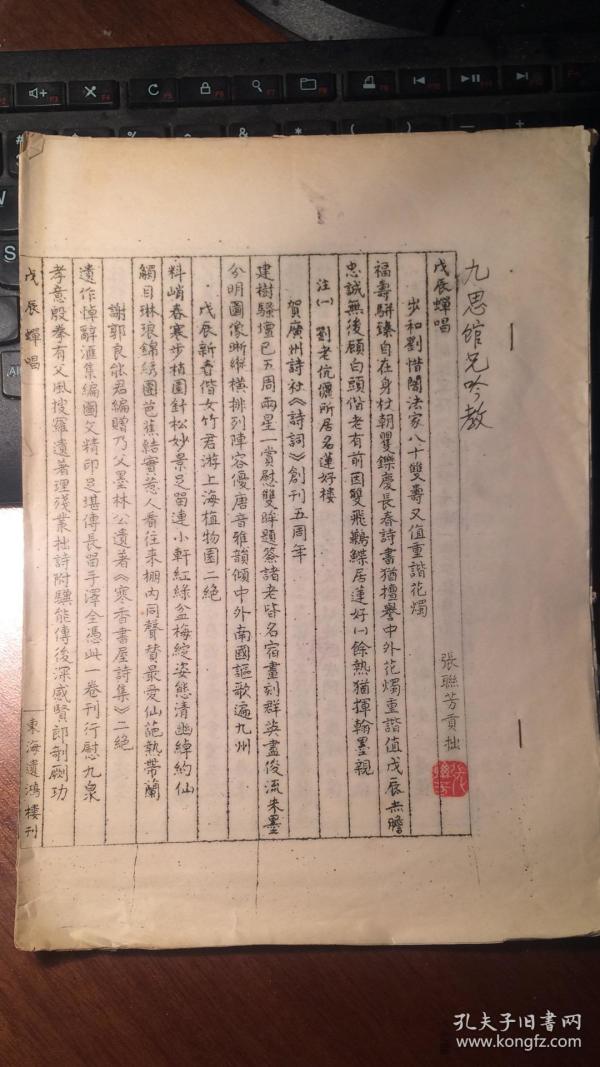 九思館兄吟教
戊辰蟬唱
步和劉惜闇法家八十雙壽又值重諧花燭
張聯芳貢拙
福壽駢臻自在身杖朝矍鑠慶長春詩書猶擅譽中外花燭重諧值戊辰赤膽
忠誠無後顧白頭偕老有前因雙飛鶼鰈居蓮好(一)餘熱猶揮翰墨親
注(一) 劉老伉儷所居名蓮好樓
賀廣州詩社《詩詞》創刊五周年
建樹騷壇已五周兩星一賞慰雙眸題簽諸老皆名宿畫刻群英盡俊流朱墨
分明圖像晰縱橫排列陣容優唐音雅韻傾中外南國謳歌遍九州
戊辰新春偕女竹君游上海植物園二絕
料峭春寒步梢園針松妙景足留連小軒紅綠盆梅綻姿態清幽綽約仙
觸目琳琅錦綉園芭蕉結實惹人看往來棚內同聲贊最愛仙葩熱帶蘭
謝郭良能君編贈乃父墨林公遺著《寒香書屋詩集》二絕
遺作悼辭滙集編圖文精印足堪傳長留手澤全憑此一卷刊行慰九泉
孝意殷拳有父風搜羅遺著理殘業拙詩附驥能傳後深感賢郎剞劂功
戊辰蟬唱
東海遺鴻樓刊
孔夫子旧书网
www.kongfz.com